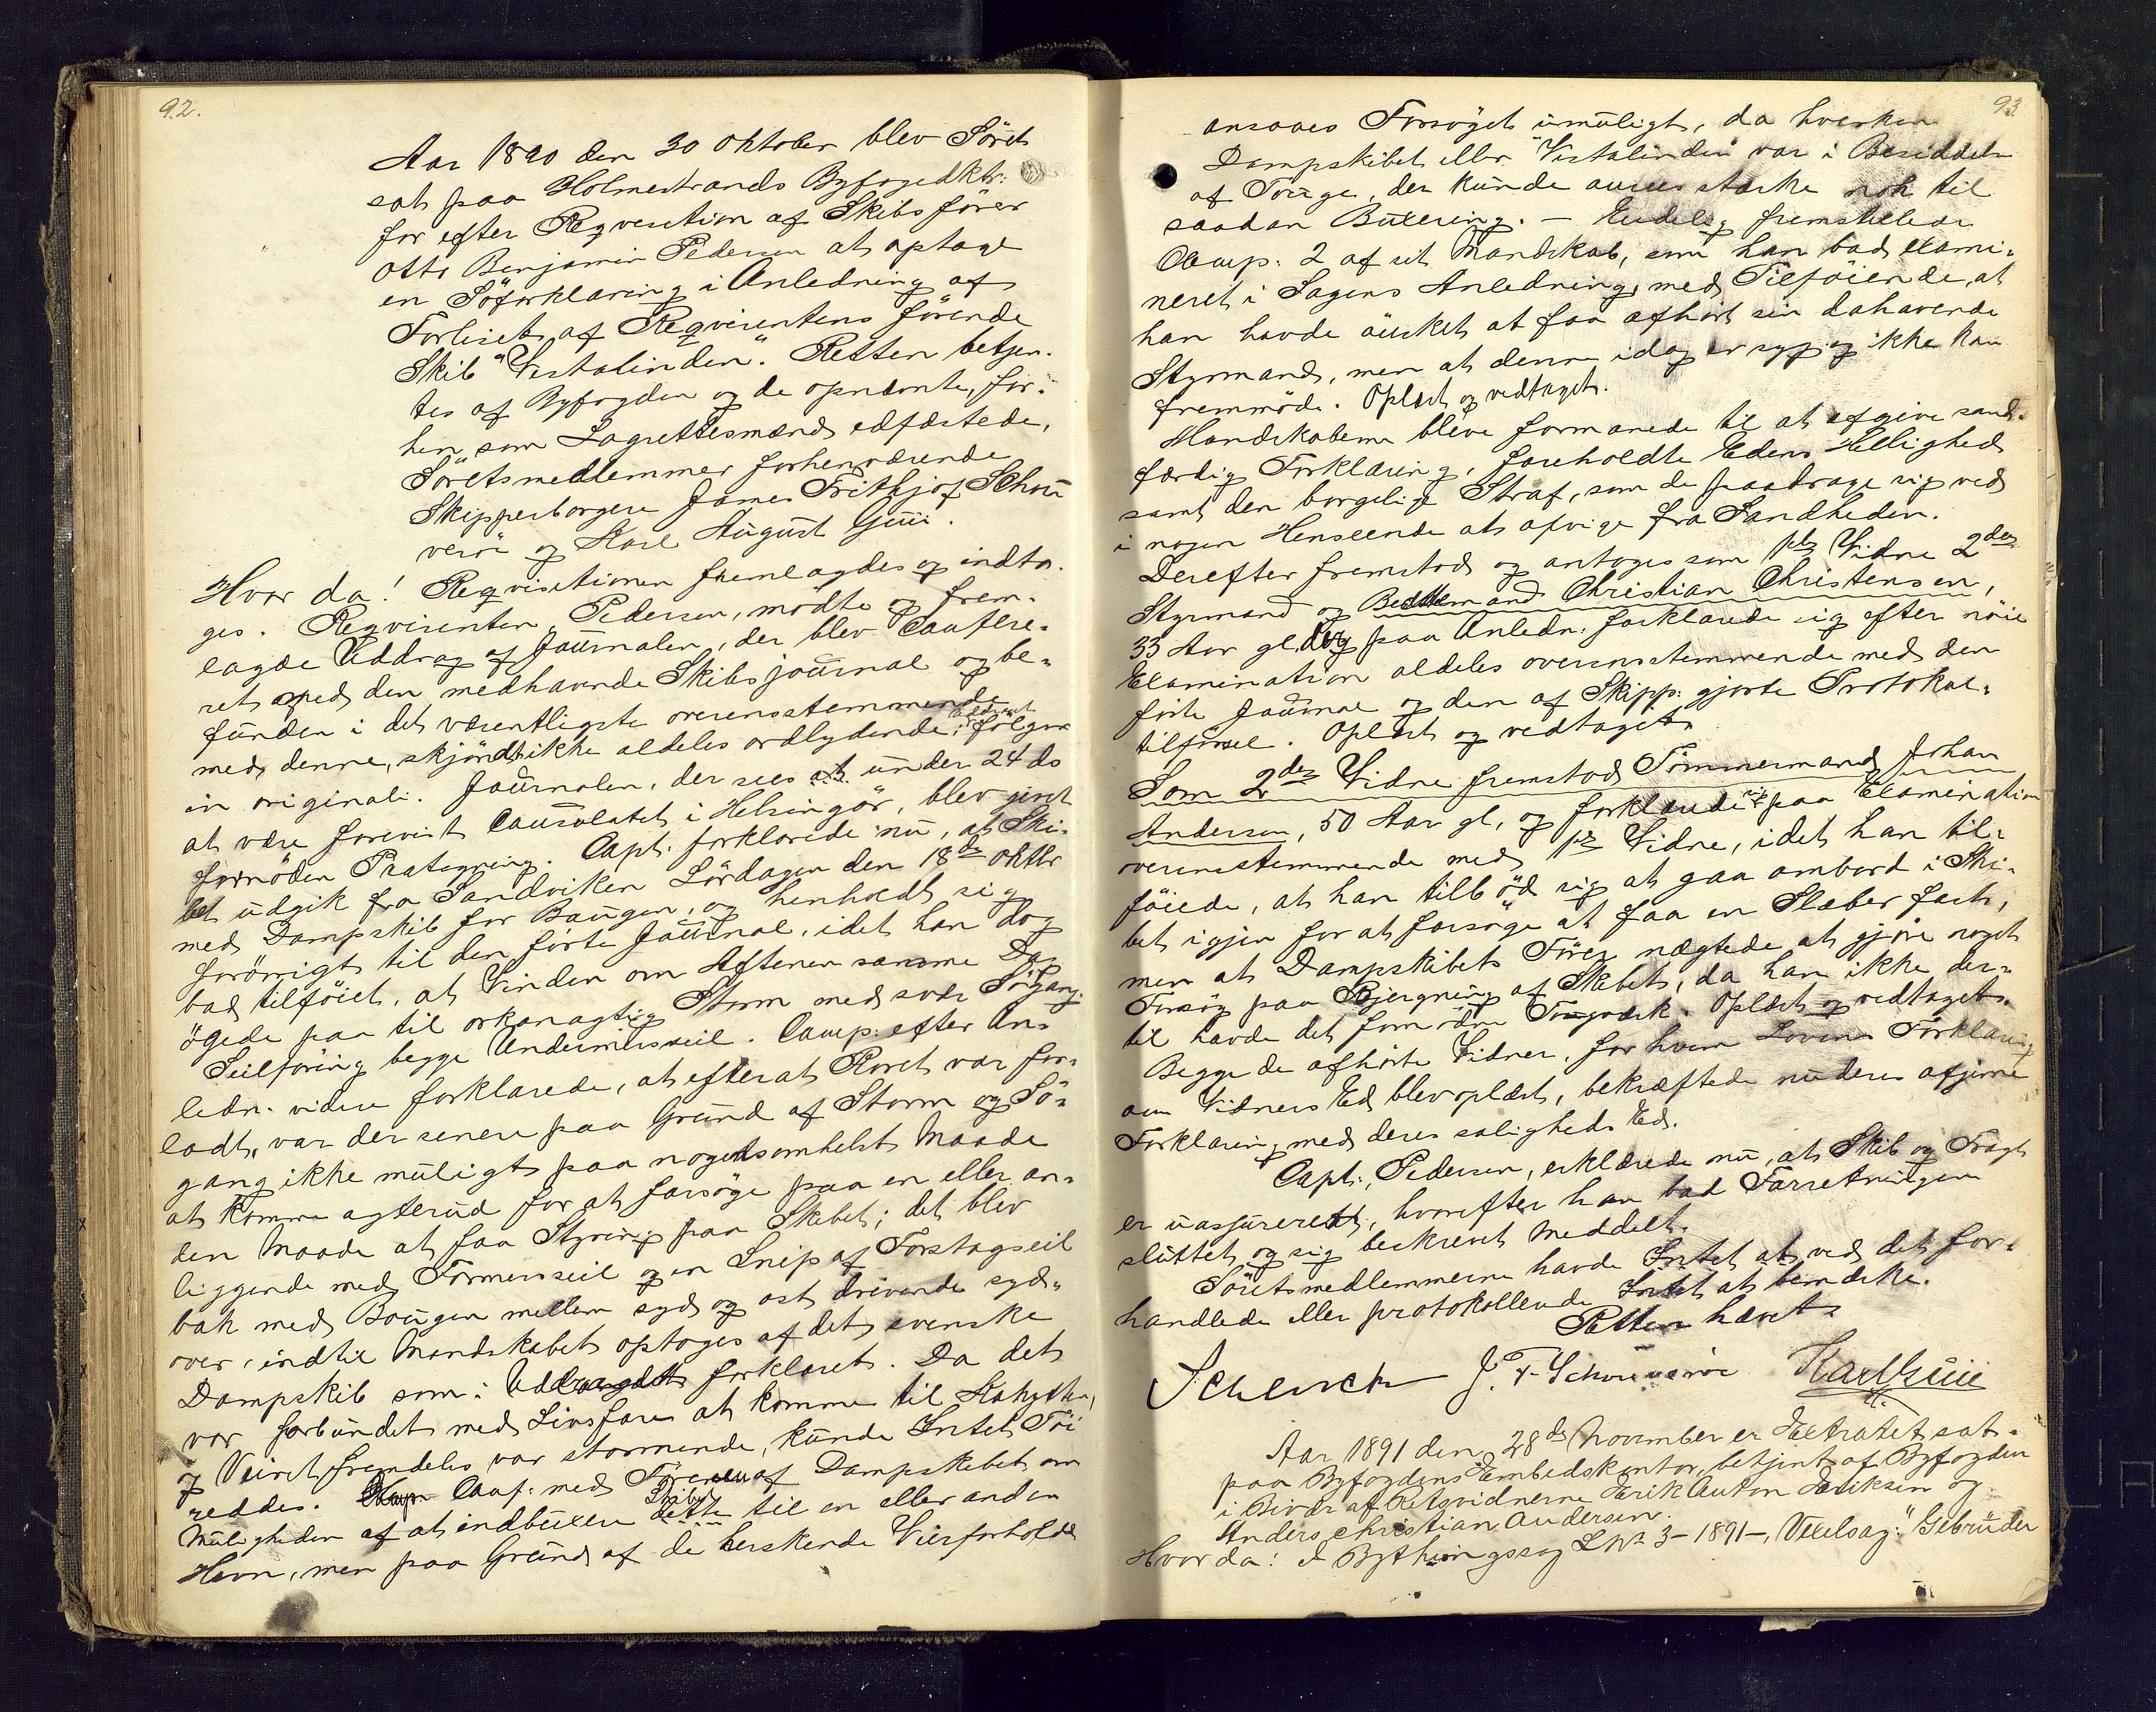 92.
Aar 1890 den 30 Oktober blev Söret
sat paa Holmestrands Byfogedktr:
for efter Reqvisition af Skibsförer
Otto Benjamin Pedersen at optage
en Söforklaring i Anledning af
Forliset af Reqvirentens förende
Skib "Vestalinden". Retten betjen-
tes af Byfogden og de opnævnte, för-
hen som Lagrettesmænd edfæstede,
Söretsmedlemmer forhenværende
Skipperborgere James Frithjof Schou
verøi og Karl August Guii.
Hvor da! Reqvisitionen fremlagdes og indto-
ges. Reqvirenten, Pedersen, mödte og frem-
lagde Uddrag af Journalen, der blev Confere-
ret med den medhavende Skibsjournal og be-
funden i det væsentligste overensstemmende
med denne, skjöndt ikke aldeles ordlydende; Uddraget fölger
in originali. Journalen, der sees at under 24 ds
at være forevist Consulatet i Helsingör, blev givet
fornöden Paategning. Capt. forklarede nu, at Ski-
bet udgik fra Sandviken Lördagen den 18de Oktbr
med Dampskib for Baugen, og henholdt sig
forövrigt til den förte Journal, idet han dog
bad tilföiet, at Vinden om Aftenen samme Dag
ögede paa til orkanagtig Storm med svær Sögang.
Seilföring begge Undermersseil. Comp. efter An-
ledn. videre forklarede, at efterat Roret var for-
ladt, var der senere paa Grund af Storm og Sö-
gang ikke muligt paa nogensomhelst Maade
at komme agterud for at forsöge paa en eller an-
den Maade at faa Styring paa Skibet; det blev
liggende med Formersseil og en Snip af Forstagseil
bak med Bougen mellem syd og ost drivende syd-
over, indtil Mandskabet optoges af det svenske
Dampskib som i Uddraget forklaret. Da det
var forbundet med Livsfare at komme til Kahytten,
og Veiret fremdeles var stormende, kunde Intet Töi
reddes. Comp. Conf. med Föreren af Dampskibet om
Muligheden af at indbuxere Skibet dette til en eller anden
Havn, men paa Grund af de herskende Veirforholde
93
ansaaes Forsöget umuligt, da hverken
Dampskibet eller "Vestalinden" var i Besiddelse
af Touge, der kunde ansees stærke nok til
saadan Buxering. – Endelig fremstillede
Comp. 2 af sit Mandskab, som han bad exami-
neret i Sagens Anledning, med Tilföiende, at
han havde önsket at faa afhört sin dahavende
Styrmand, men at denne idag er syg og ikke kan
fremmöde. Oplæst og vedtaget.
Mandskaberne bleve formanede til at afgive sand-
færdig Forklaring, foreholdte Edens Hellighed
samt den borgelige Straf, som de paadrage sig ved
i nogen Henseende at afvige fra Sandheden.
Derefter fremstod og antoges som 1ste Vidne 2den
Styrmand og Bedstemand Christian Christensen,
33 Aar gl. og paa Anledn. forklarede sig efter nöie
Examination aldeles overensstemmende med den
förte Journal og den af Skipp. gjorte Protokol-
tilförsel. Oplæst og vedtaget.
Som 2det Vidne fremstod Tömmermand Johan
Andersen, 50 Aar gl., og forklarede sig paa Examination
overensstemmende med 1ste Vidne, idet han til-
föiede, at han tilböd sig at gaa ombord i Ski-
bet igjen for at forsöge at faa en Slæber fast,
men at Dampskibets Förer nægtede at gjöre noget
Forsög paa Bjergning af Skibet, da han ikke der-
til havde det fornödne Tougværk. Oplæst og vedtaget.
Begge de afhörte Vidner, for hvem Lovens Forklaring
om Vidners Ed blev oplæst, bekræftede nu deres afgivne
Forklaring med deres saligheds Ed.
Capt., Pedersen, erklærede nu, at Skib og Fragt
er uassureret, hvorefter han bad Forretningen
sluttet og sig beskrevet Meddelt.
Söretsmedlemmerne havde Intet at ved det for-
handlede eller protokollerede Intet at bemærke.
Retten hævet
Schenck J. F. Schouverøi Karl Guii
Aar 1891 den 28de November er Extraret sat
paa Byfogdens Embedskontor, betjent af Byfogden
i Bivær af Retsvidnerne Erik Anton Eriksen og
Anders Christian Andersen.
Hvor da: I Bythingssag L No 3 – 1891 –, Vexelsag: "Gebrüder